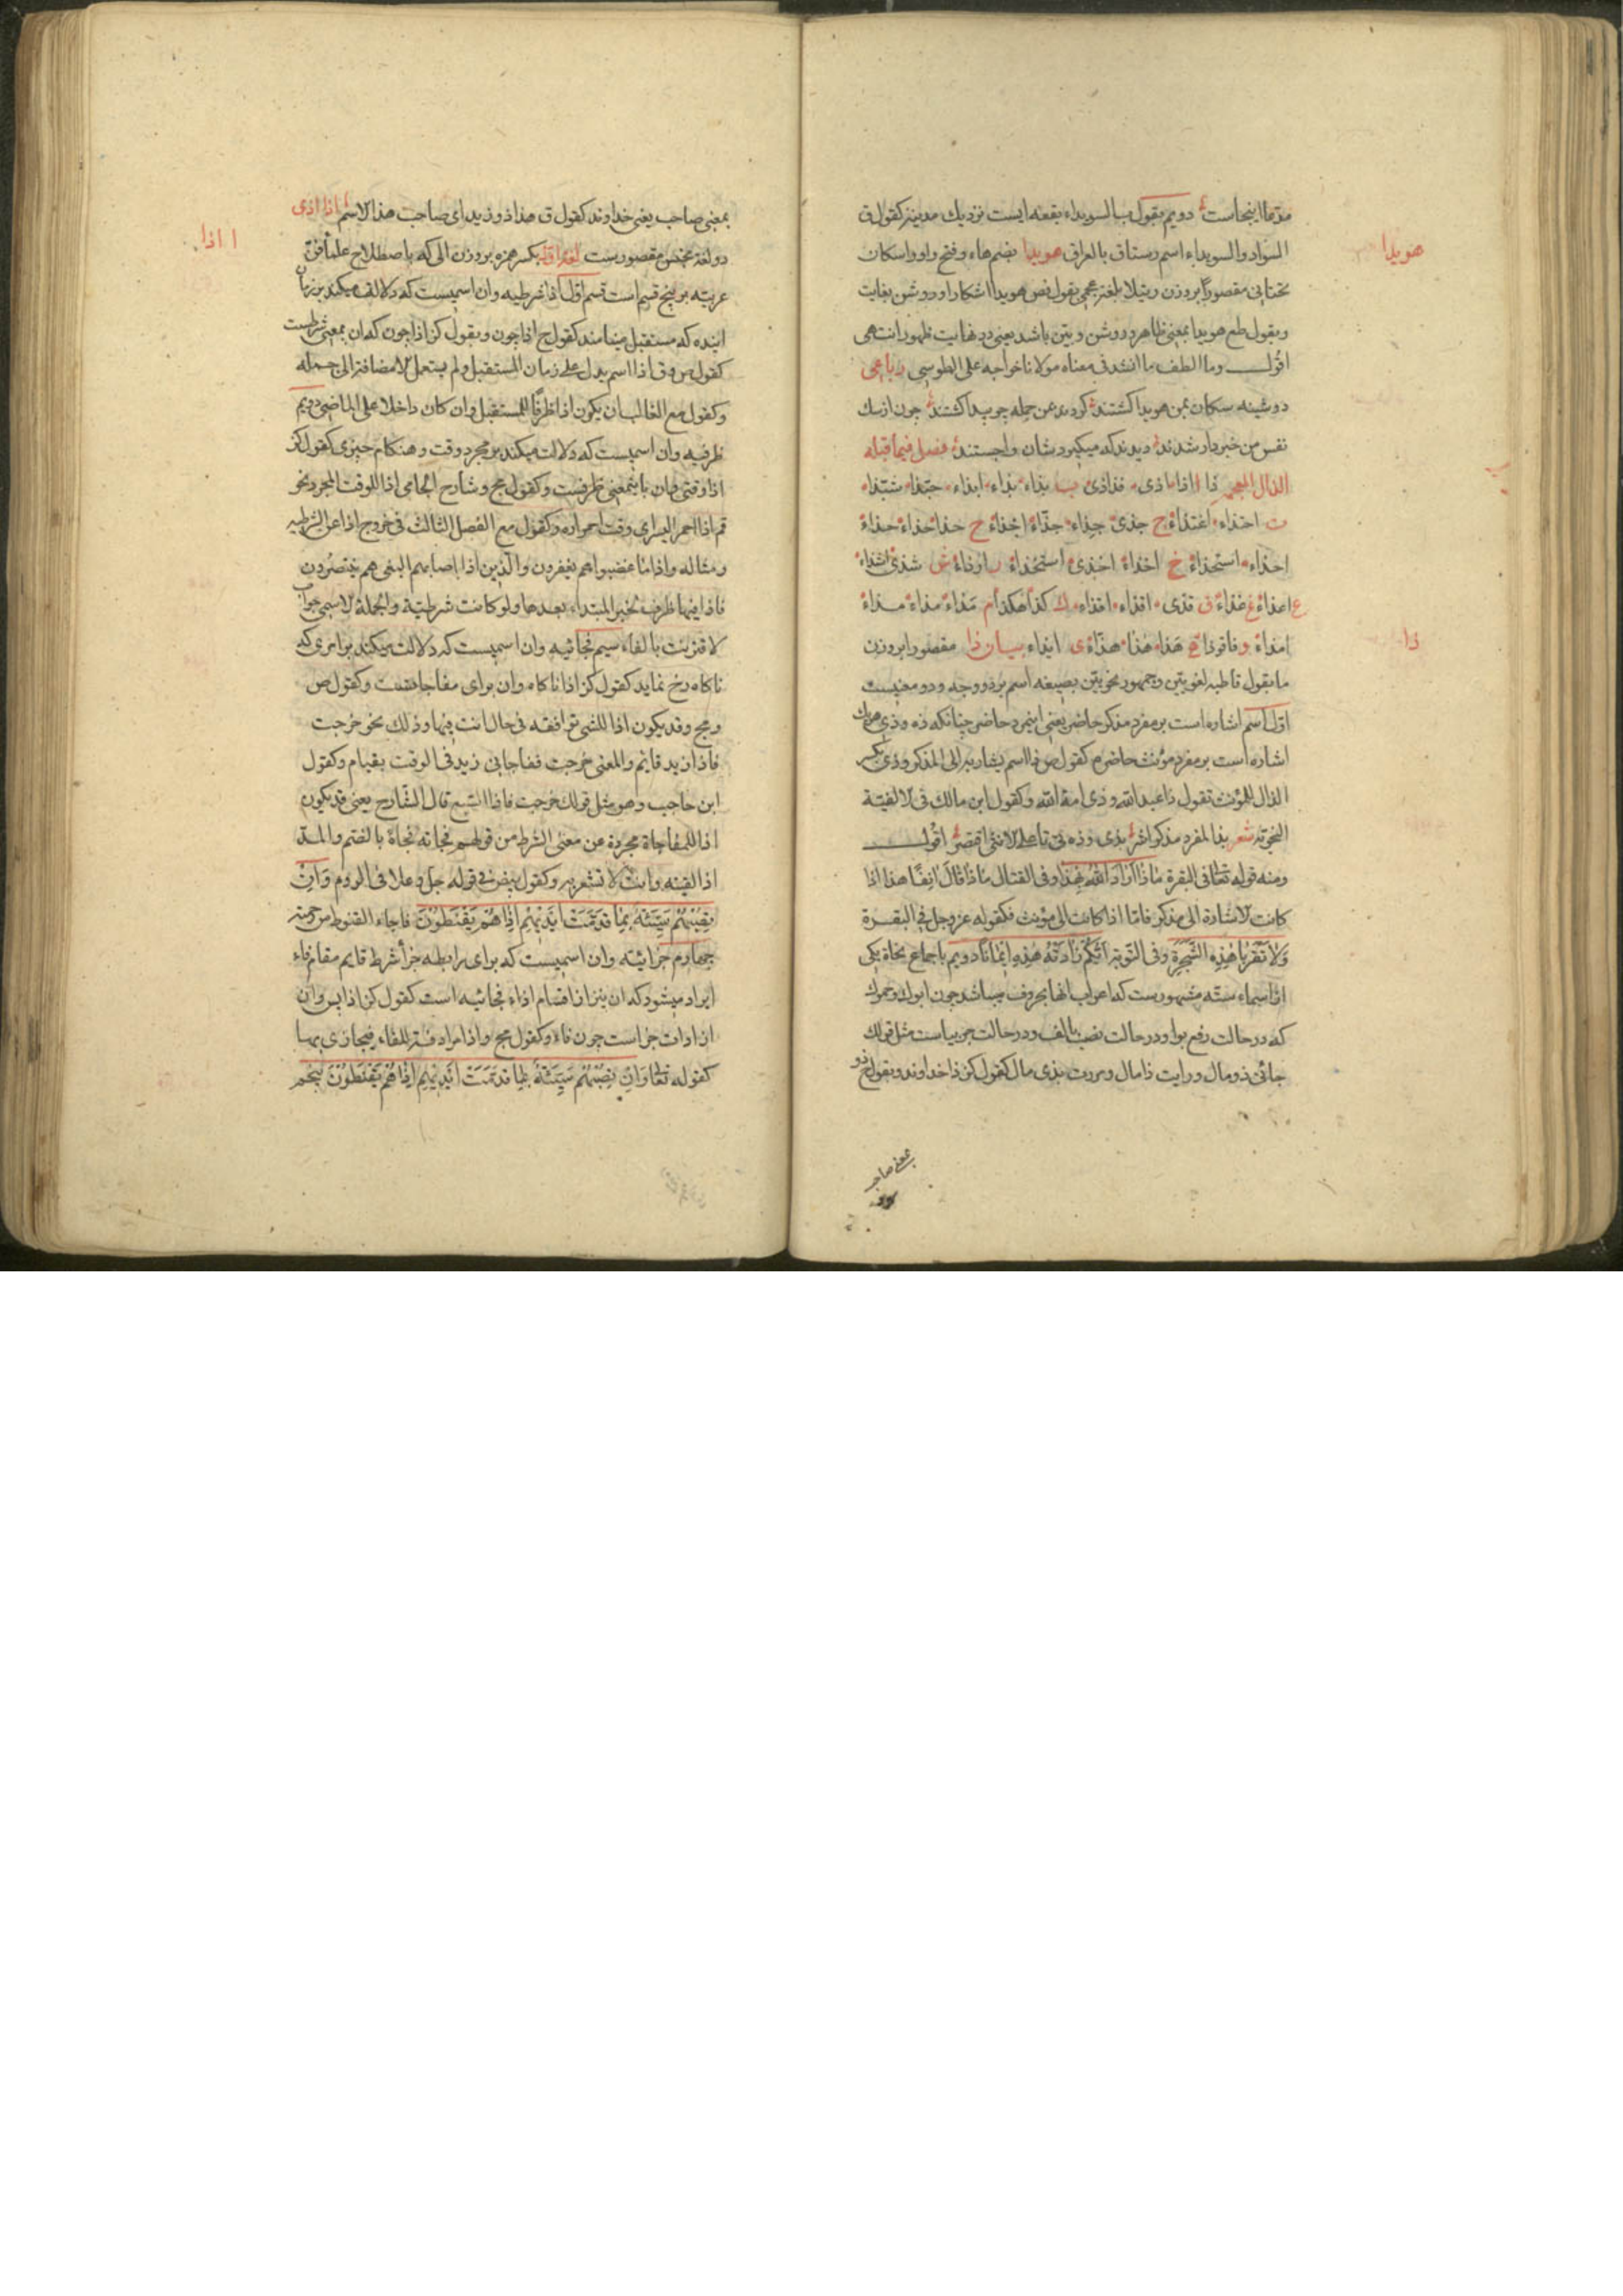 مدعا اینجاست دویم بقول ب السویداء بقعه ایست نزدیك مدینه کقول ق
هویدا
السواد والسویداء اسم رستاق بالعراق هویدا بضم هاء و فتح واو و اسکان
تحتانی مقصورا بروزن بلغة عجمی بقول فص هویدا اشکارا و روشن بغایت
وبقول طع هویدا بمعنی ظاهر و روشن و بین باشد یعنی در نهایت ظهور انتهی
اقول وما الطف ما انشد فی معناه مولانا خواجه علی الطوسی رباعی
دوشینه سکان بمن هویدا کشتند کردند عن جمله چو پیدا کشتند چون از سك
نفس من خبردار شدند دیدند که میکبود شان واجستند فصل فیما قبله
الذال المعجمة ذا اذا اذی قذاذی ب بذاء بذاء ابذاء
ت احتذاء اغتذاء ج جذی جذاء جذاء اجذاء ح حذا حذاء حذاء
احذاء استحذاء خ اخذاء استخذاء ش شذی اشذاء
ع اعذاء غ غذاء ق قذی اقذاء اقذاء ك کذا هکذا م مذاء مذاء
ذا
امذاء و ه هذا هذا هذاء ی ایذاء بیان ذا مقصورا بروزن
ما بقول قاطبه لغویین وجمهور نحویین بصیغه اسم بر دو وجه و دو معنیست
اول اسم اشاره است بر مفرد مذکر حاضر یعنی اینمرد حاضر چنانکه ذه و ذی
اشاره است بر مفرد مؤنث حاضر کقول ص ذا اسم یشار به الی المذکر وذی بکسر
الذال للمؤنث تقول ذا عبد الله وذی امة الله وکقول ابن مالك فی الالفیة
النحویه شعر بذا لمفرد مذکر اشر بذی وذه تی تا علی الانثی اقتصر اقول
ومنه قوله تعالی فی البقرة ماذا اراد الله بهذا وفی القتال ماذا قال انفا هذا اذا
کانت الاشارة الی مذکر فاما اذا کانت الی مؤنث فکقوله عز وجل فی البقرة
ولا تقربا هذه الشجرة وفی التوبة ایکم زادته هذه ایمانا دویم باجماع نحاة یکی
از اسماء سته مشهورست که اعراب انها بحروف میباشد چون ابوك وحموك
که در حالت رفع بواو ودر حالت نصب بالف ودر حالت جر بیاست مثل قولك
جائنی ذو مال ورایت ذا مال ومررت بذی مال کقول کز ذا خداوند وبقول ذو
بمعنی صاحب
بمعنی صاحب یعنی خداوند کقول ق هذا ذو زید ای صاحب هذا الاسم اذا اذی
ا اذا
دو لغة مختص مقصورست لغة اول بکسر همزه بروزن الی که باصطلاح علماء فن
عربیه بر پنج قسم است قسم اول اذا شرطیه وان اسمیست که دلالت میکند بر زمان
اینده که مستقبل مینامند کقول ح اذا چون وبقول کز اذا چون که ان بمعنی شرطست
کقول ص وق اذا اسم یدل علی زمان المستقبل ولم یستعمل الا مضافة الی جمله
وکقول مع الغالب ان یکون اذا ظرفا للمستقبل وان کان داخلا علی الماضی دویم
ظرفیه وان اسمیست که دلالت میکند بر مجرد وقت و هنکام چیزی کقول کز
اذا وقتی وان باینمعنی ظرفست وکقول مج و شارح الجامی اذا للوقت المجرد نحو
قم اذا احمر البسر ای وقت احمراره وکقول مع الفصل الثالث فی خروج اذا عن الشرطیه
ومثاله واذا ما غضبوا هم یغفرون والذین اذا اصابهم البغی هم ینتصرون
فاذا فیهما ظرف لخبر المبتداء بعدها ولو کانت شرطیة والجملة الاسمیة جواب
لاقترنت بالفاء سیم فجائیه وان اسمیست که دلالت میکند بر امری که
ناکاه رخ نماید کقول کز اذا ناکاه وان برای مفاجاتست وکقول ص
ومج وقد یکون اذا للشئ توافقه فی حال انت فیها وذلك نحو خرجت
فاذا زید قایم والمعنی خرجت ففاجانی زید فی الوقت بقیام وکقول
ابن حاجب وهو مثل قولك خرجت فاذا السبع قال الشارح یعنی قد یکون
اذا للمفاجاة مجردة عن معنی الشرط من قولهم فجاته فجاة بالضم والمد
اذا لقیته وانت لا تشعر به وکقول بیض فی قوله جل وعلا فی الروم وان
تصبهم سیئة بما قدمت ایدیهم اذا هم یقنطون فاجاء القنوط من رحمته
چهارم جزائیه وان اسمیست که برای رابطه جزا شرط قایم مقام فاء
ایراد میشود که ان نیز از اقسام اذاء فجائیه است کقول کز اذا پس وان
از ادات جزاست چون فاء وکقول مج واذا مرادفة للفاء فیجازی بها
کقوله تعالی وان تصبهم سیئة بما قدمت ایدیهم اذا هم یقنطون پنجم